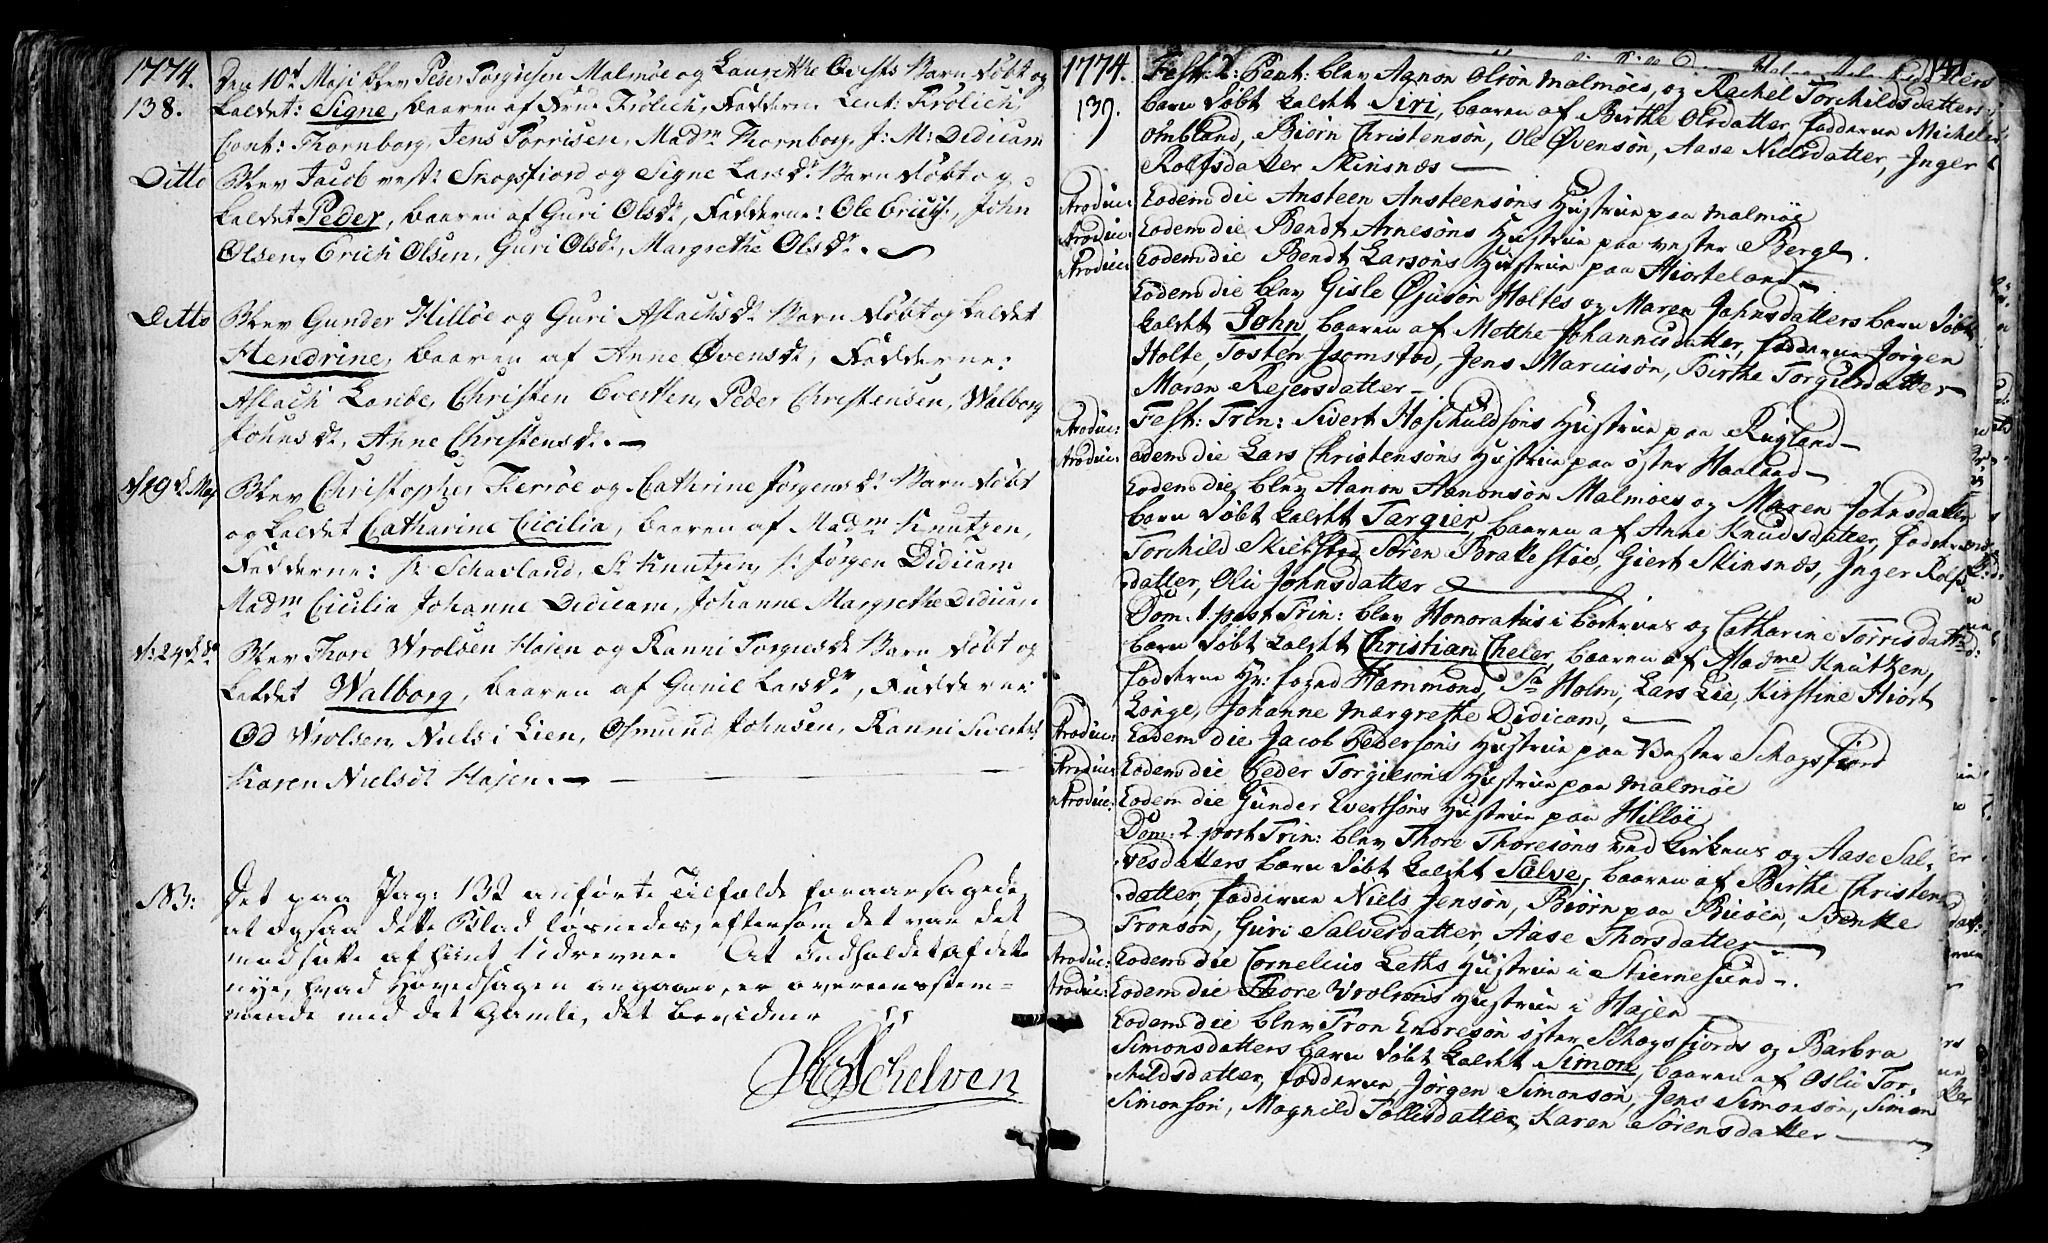 1774.
138.
Den 10d Maji blev Peder Torgiesen Malmøe og Laurethe Evertsd Barn døbt og
kaldet: Signe, baaren af Frue Frølich, Fadderne Leut: Frølich
Cont: Thornborg, Jens Torrisen, Madm Thornborg, J: M: Didicam
Ditto Blev Jacob vest: Skogsfiord og Signe Larsdr Barn døbt og
kaldet Peder, baaren af Guri Olsdr, Fadderne: Ole Erichs:, John
Olsen, Erich Olsen, Guri Olsdr, Margrethe Olsdr.
Ditto Blev Gunder Hilløe og Guri Aslachsdr Barn døbt og kaldet
Hendrine, baaren af Anne Øvensdr, Fadderne:
Aslach Lande, Christen Evertsen, Peder Christensen, Walborg
Johnsdr, Anne Christensdr.
d: 19d Maj Blev Christopher Ferrøe og Cathrine Jørgensdr Barn døbt
og kaldet Catharine Cicilia, baaren af Madm Knutzen,
Fadderne: Sr Schavland, Sr Knutzen, Sr Jørgen Didicam
Madm Cicilia Johanne Didicam, Johanne Margrethe Didicam
d: 24d do Blev Thore Wrolsen Høien og Ranni Torgiusdr Barn døbt og
kaldet Walborg, baaren af Gunil Larsdr, Fadderne
Od Wrolsen, Niels i Lien, Osmund Johnsen, Ranni Sivertsdr
Karen Nielsdr Høien.
183:
Det paa Pag: 132 anførte Tilfælde foraarsagede,
at ogsaa dette Blad løsnedes, eftersom det var det
modsatte af hiint udrevne. At Indholdet af dette
nye, hvad Hovedsagen angaaer, er overeensstem-
mende med det Gamle, det bevidner
Schelven
1774.
139.
Fest: 2: Pent: blev Aanon Olsøn Malmøes, og Rachel Torchildsdatters
barn døbt kaldet Siri, baaren af Birthe Olsdatter, fadderne Michel
Ombland, Biørn Christensøn, Ole Øvensøn, Aase Nielsdatter, Inger
Rolfsdatter Skinsnæs
Introduc: Eodem die Ansteen Ansteensøns Hustrue paa Malmøe
Introduc: Eodem die Bendt Arnesøns Hustrue paa vester Berge.
Introduc: Eodem die Bendt Larsøns Hustrue paa Hiorteland
Eodem die blev Gisle Øjusøn Holtes og Maren Johnsdatters barn døbt
kaldet John, baaren af Mætthe Johannisdatter, fadderne Jørgen
Holte, Tosten Jsomstød, Jens Marcusøn, Birthe Torgiusdatter
Maren Rejersdatter
Introduc: Fest: Trin: Sivert Hoschuldsøns Hustrue paa Rugland
Introduc: eodem die Lars Christensøns Hustrue paa øster Haaland
Eodem die, blev Aanon Aanonsøn Malmøes og Maren Johnsdatters
barn døbt kaldet Targier, baaren af Anne Knudsdatter, fadderne
Torchild Skiefsted, Søren Brakestøe, Giert Skinsnæs, Inger Rolfs-
datter, Olu Johnsdatter
Dom: 1. post Trin: blev Honoratus i boernes og Catharine Torrisdatters
barn døbt kaldet Christian Cheler, baaren af Madme Knutzen,
fadderne Hr: foged Hammond, Sr Holm, Lars Lie, Kirstine Hiort
Longe, Johanne Margrethe Didicam,
Introduc: Eodem die Jacob Pedersøns Hustrue paa Vester Skogsfiord
Introduc: Eodem die Peder Torgiesøns Hustrue paa Malmøe
Introduc: Eodem die Gunder Evertsøns Hustrue paa Hilløe
Dom: 2. post Trin: blev Thore Thoresøns ved kirkens og Aase Sal-
vesdatters barn døbt kaldet Salve, baaren af Birthe Christens
datter, fadderne Niels Jensøn, Biørn paa Buøen, Bente
Tronsøn, Guri Salvesdatter, Aase Thorsdatter
Introduc: Eodem die Cornelius Leths Hustrue i Stiernesund.
Introduc: Eodem die Thore Wrolsøns Hustrue i Høien
Eodem die blev Tron Endresøn øster Skogsfiords og Barbra
Simonsdatters barn døbt kaldet Simon, baaren af Oslu Tor-
childsdatter, fadderne Jørgen Simonsøn, Jens Simonsøn, Simon
Simonsøn, Magnild Tollisdatter, Karen Sørensdatter